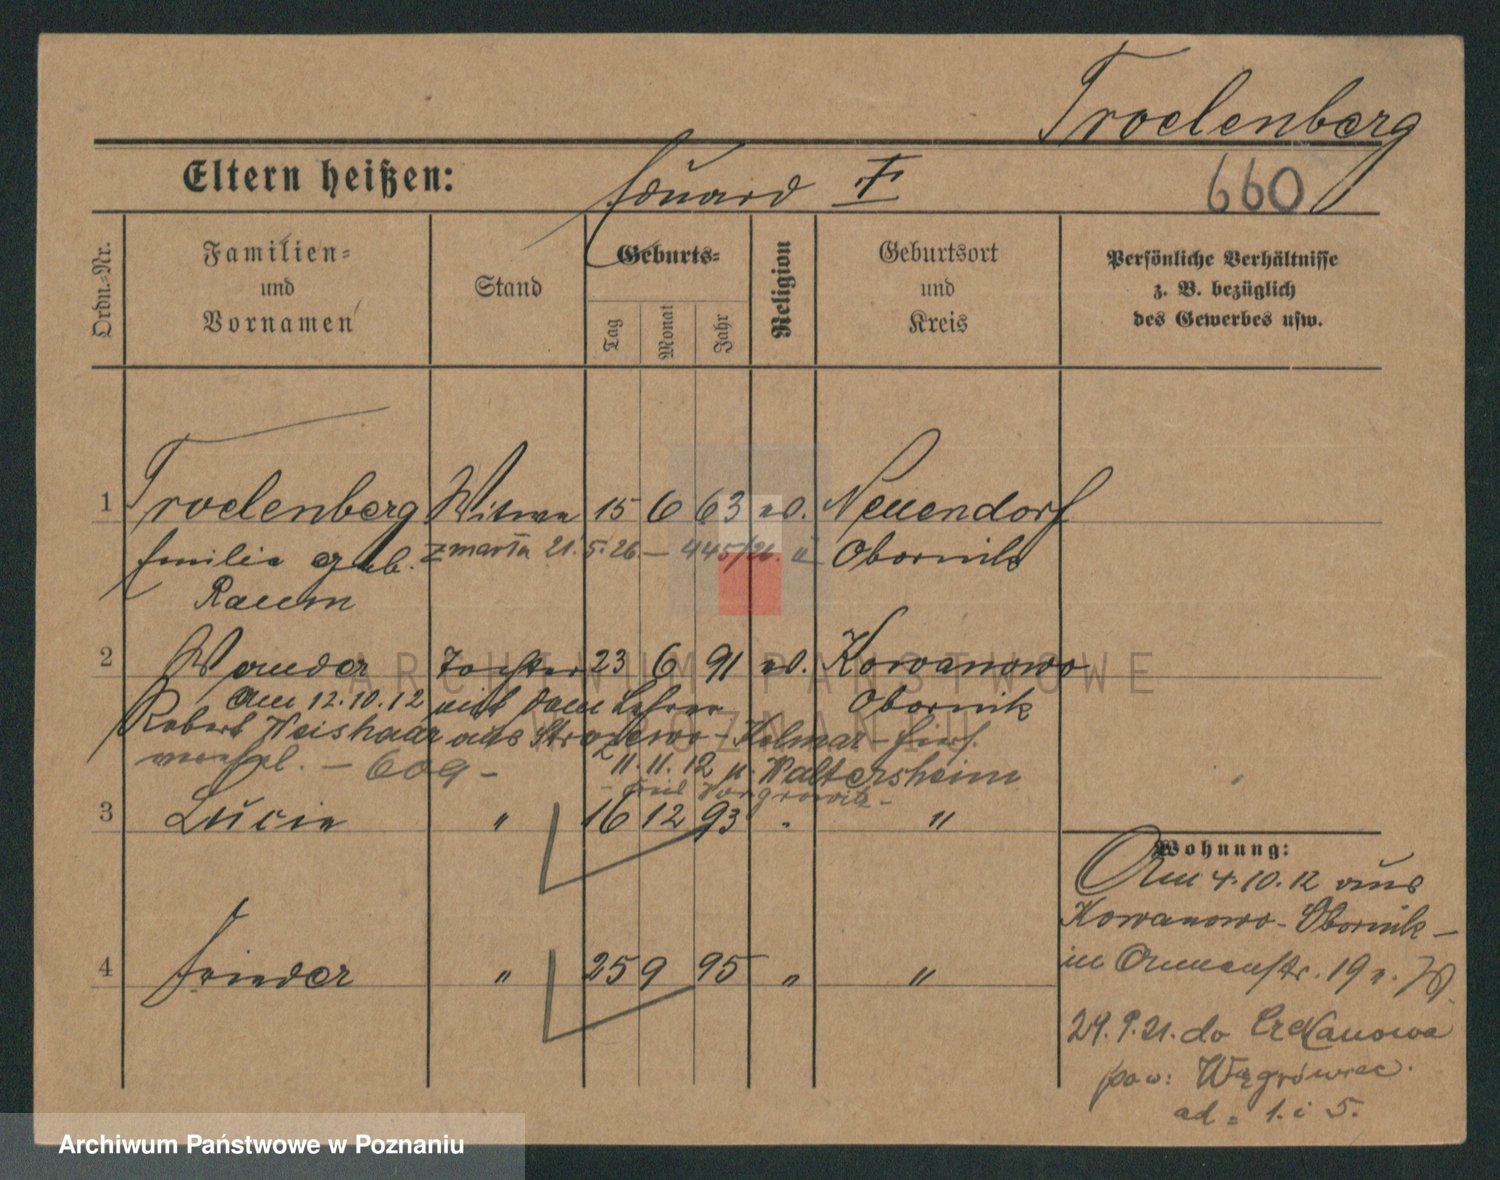 Troelenberg
Eltern heißen: Eduard †
660
Ordn.-Nr.
Familien- und Vornamen
Stand
Geburts-
Tag
Monat
Jahr
Religion
Geburtsort und Kreis
Persönliche Verhältnisse
z. B. bezüglich
des Gewerbes usw.
1 Troelenberg Witwe 15 6 63 ev. Neuendorf
Emilie geb. zmarła 21.5.26 — 445/26. Obornik
Raum
2 Wander Tochter 23 6 91 ev. Kowanowo
Am 12.10.12 mit dem Lehrer Obornik
Robert Weishaar aus Strozewo - Kolmar hier.
verehel. — 609 — 11.11.12 n. Waltersheim
Wongrowitz -
3 Lucie " 16 12 93 " "
4 Frieder " 25 9 95 " "
Wohnung:
Am 4.10.12 aus
Kowanowo - Obornik -
in 19
24.9.21. do
pow: Wągrówiec.
ad = 1. i 5.
ARCHIWUM PAŃSTWOWE
W POZNANIU
Archiwum Państwowe w Poznaniu